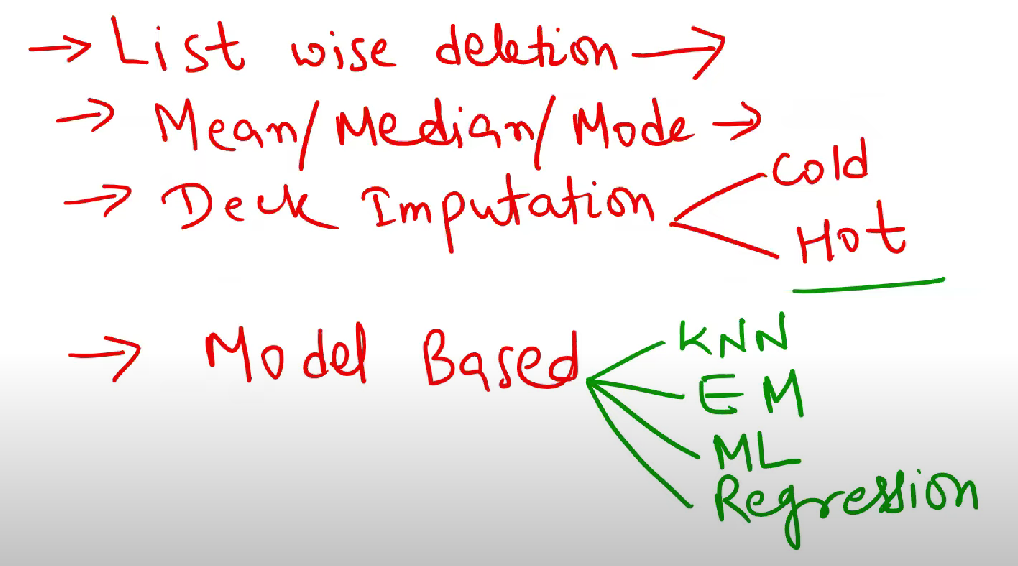 → List wise deletion →
→ Mean/Median/Mode →
→ Deck Imputation
Cold
Hot
→ Model Based
KNN
EM
ML
Regression